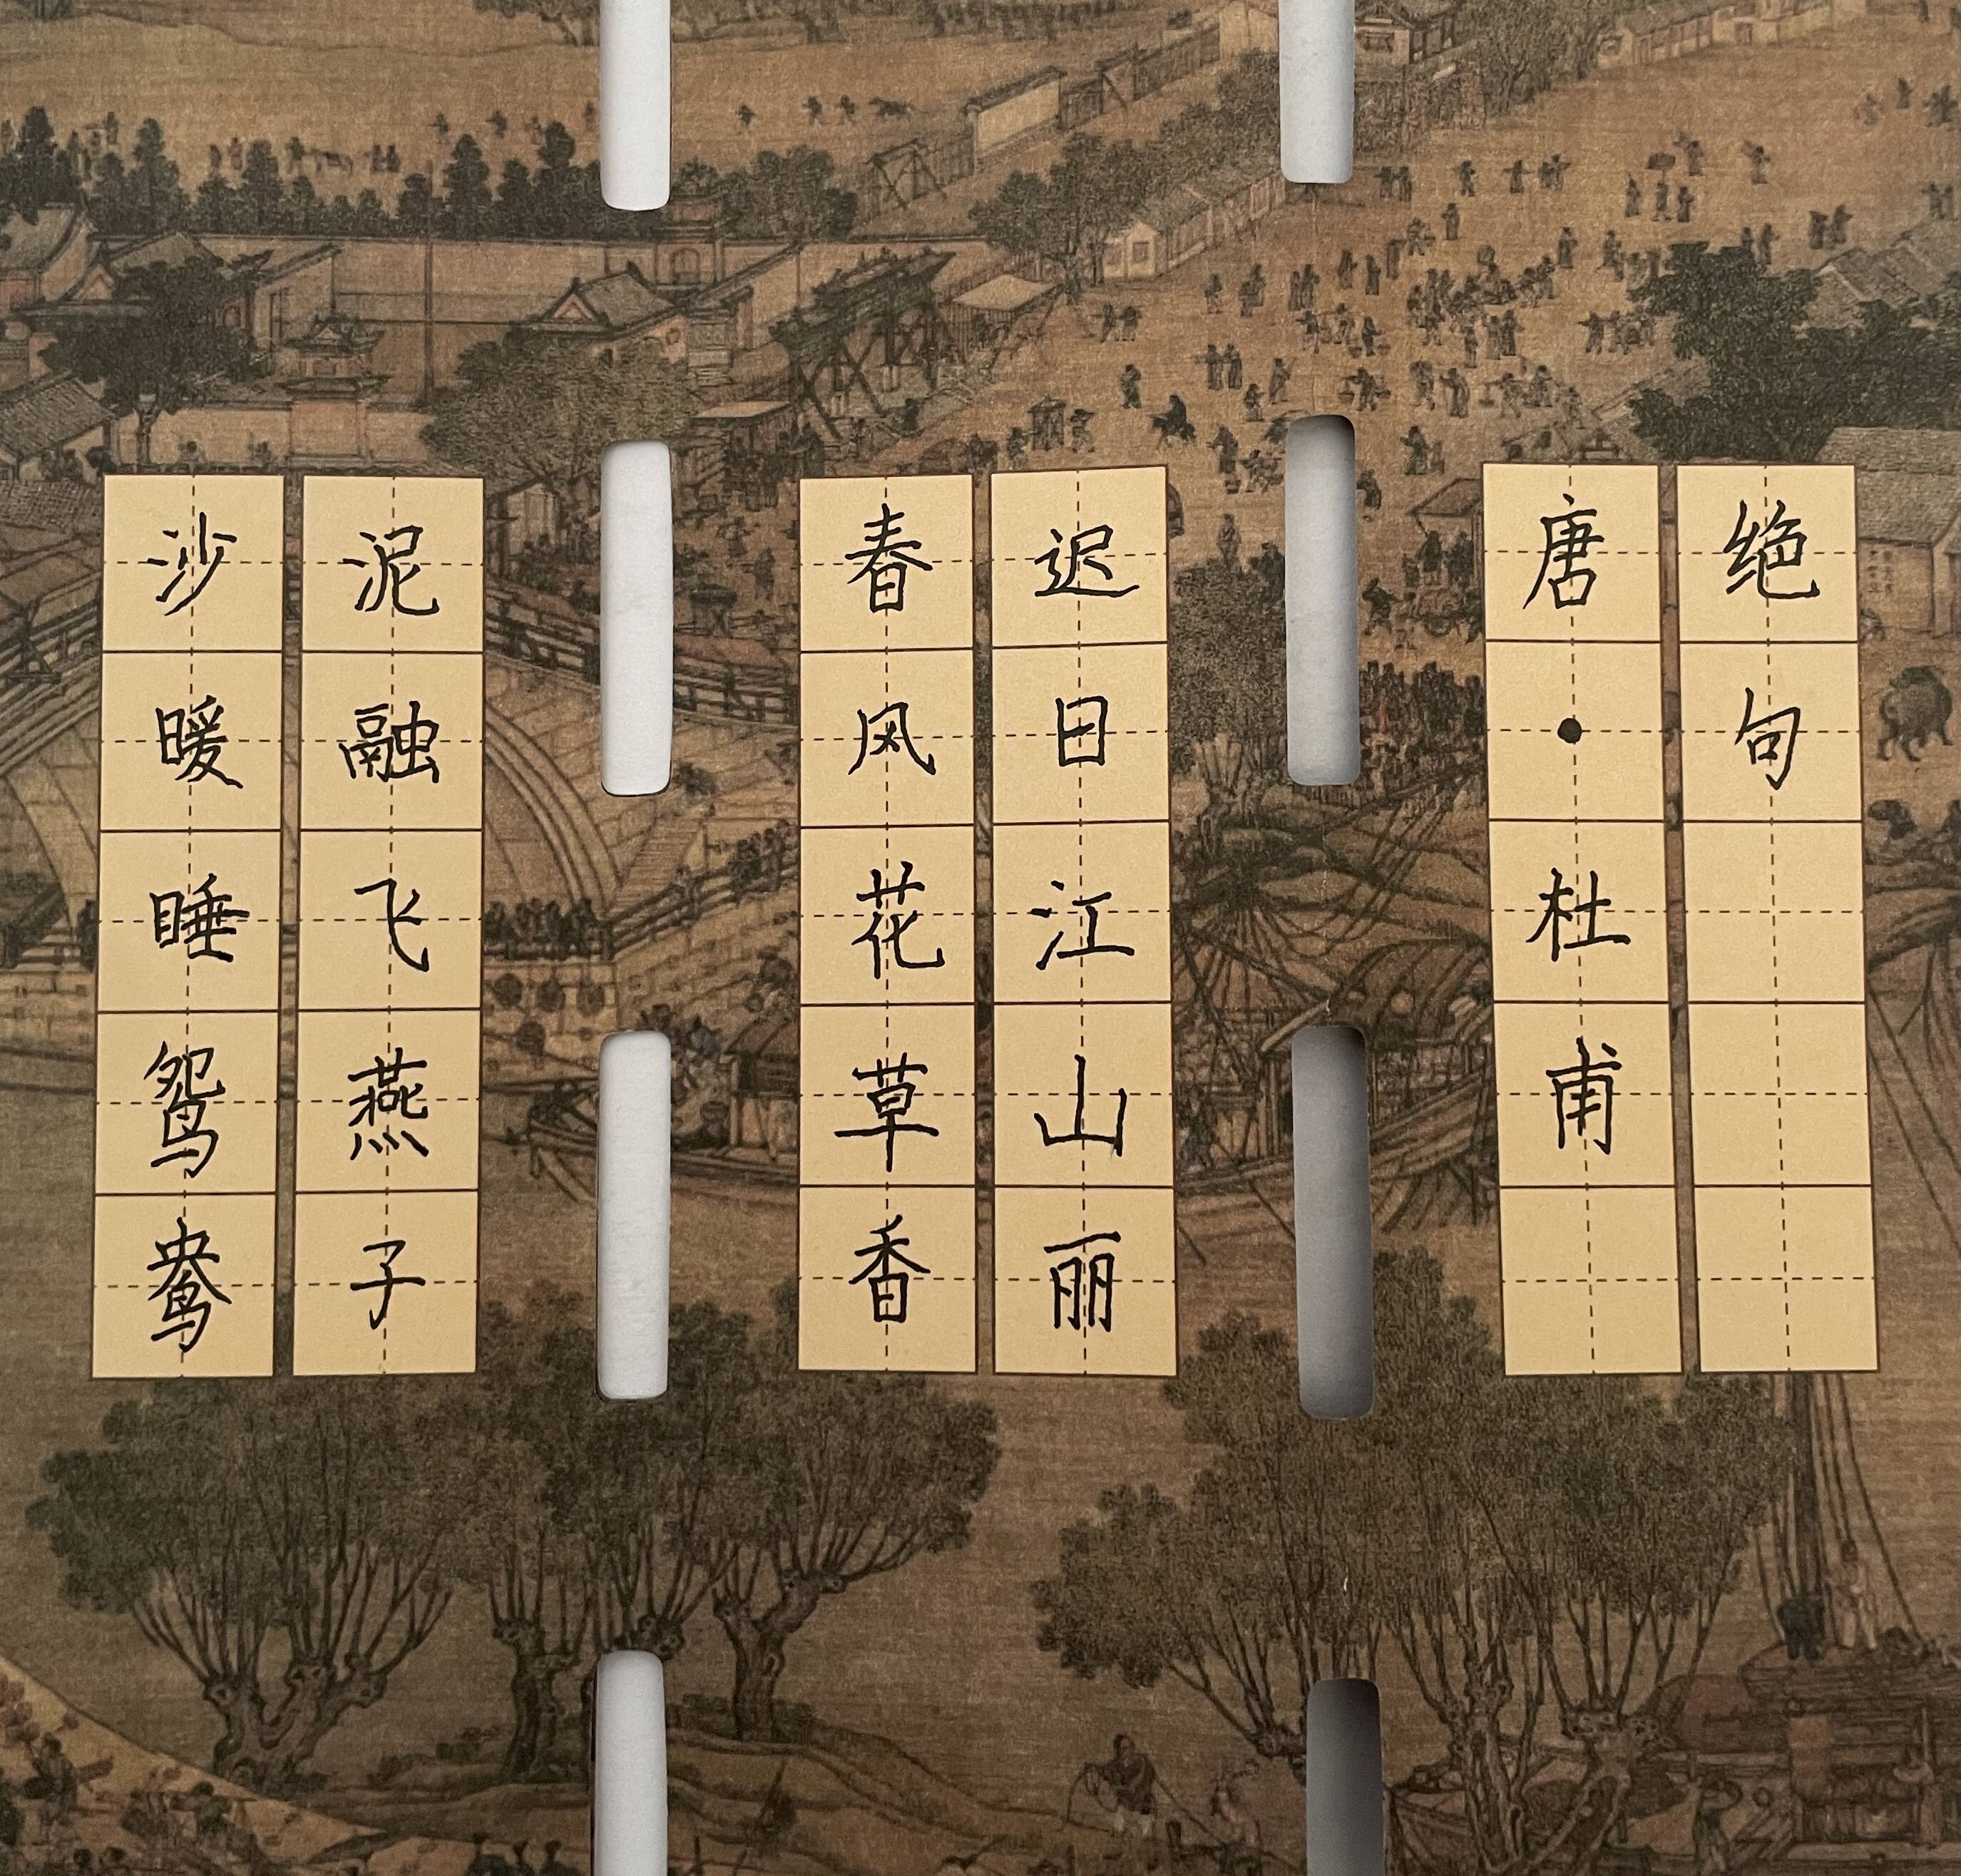 绝句
唐·杜甫
迟日江山丽
春风花草香
泥融飞燕子
沙暖睡鸳鸯